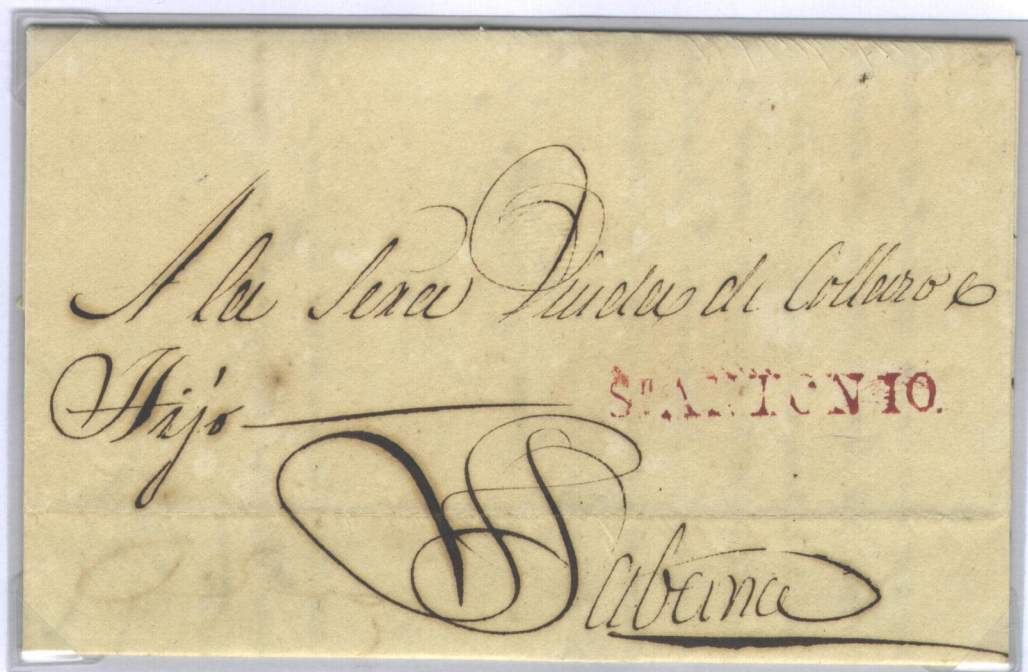 A la Sera Viuda de Collazo e
Hijo
Sn ANTONIO.
Habana